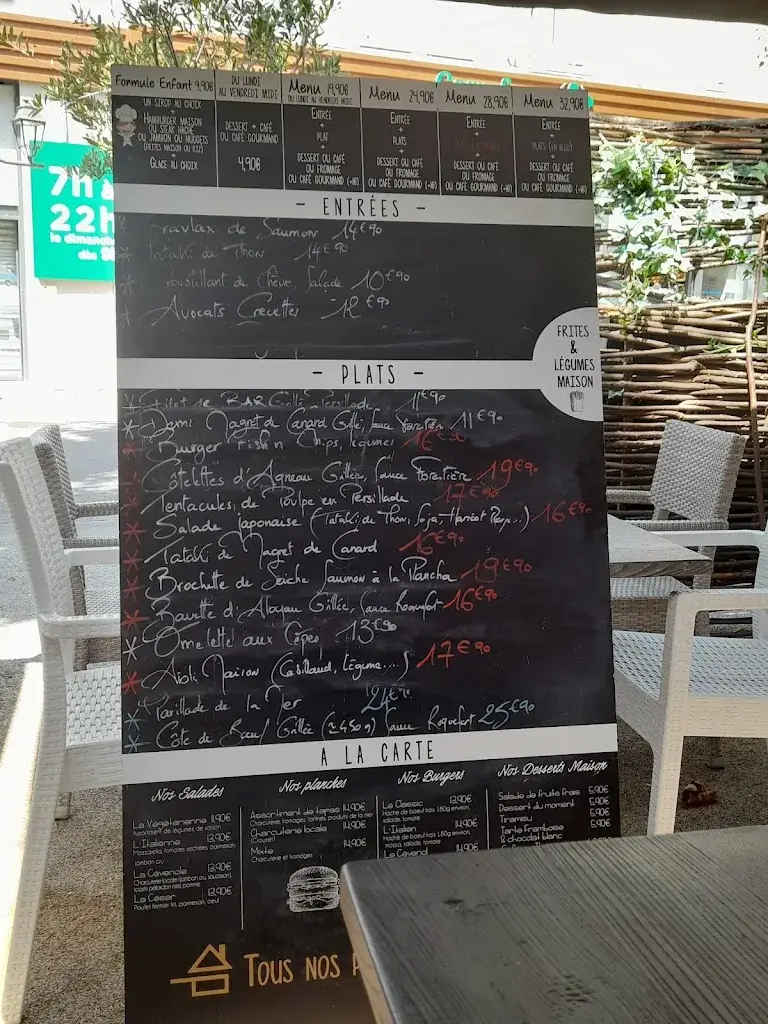 Formule Enfant 9,90€
UN SIROP AU CHOIX
+
HAMBURGER MAISON
OU STEAK HACHÉ
OU JAMBON OU NUGGETS
(FRITES MAISON OU RIZ)
+
GLACE AU CHOIX
DU LUNDI
AU VENDREDI MIDI
DESSERT + CAFÉ
OU CAFÉ GOURMAND
4,90€
Menu 19,90€
DU LUNDI AU VENDREDI MIDI
ENTRÉE
+
PLAT
+
DESSERT OU CAFÉ
OU FROMAGE
OU CAFÉ GOURMAND (+1€)
Menu 24,90€
ENTRÉE
+
PLATS
+
DESSERT OU CAFÉ
OU FROMAGE
OU CAFÉ GOURMAND (+1€)
Menu 28,90€
ENTRÉE
+
PLATS
+
DESSERT OU CAFÉ
OU FROMAGE
OU CAFÉ GOURMAND (+1€)
Menu 32,90€
ENTRÉE
+
PLATS (EN BLEU)
+
DESSERT OU CAFÉ
OU FROMAGE
OU CAFÉ GOURMAND (+1€)
7h à
22h
le dimanche
dès
- ENTRÉES -
Gravlax de Saumon 14€90
Tataki de Thon 14€90
Croustillant de Chèvre, Salade 10€90
Avocats Crevettes 12€90
FRITES
&
LÉGUMES
MAISON
- PLATS -
Filet de BAR Grillé Persillade 11€90
Demi Magret de Canard Grillé, sauce Forestière 11€90
Burger Fish n Chips, légumes 16€90
Côtelettes d'Agneau Grillée, Sauce Forestière 19€90
Tentacules de Poulpe en Persillade 17€90
Salade Japonaise (Tataki de Thon, Soja, Haricot Rouge...) 16€90
Tataki de Magret de Canard 16€90
Brochette de Seiche Saumon à la Plancha 19€90
Bavette d'Aloyau Grillée, Sauce Roquefort 16€90
Omelette aux Cèpes 13€90
Aïoli Maison (Cabillaud, légume....) 17€90
Parillade de la Mer 24€90
Côte de Bœuf Grillée (≈450g) Sauce Roquefort 25€90
A LA CARTE
Nos Salades
La Végétarienne 11,90€
Assortiment de légumes de saison
L'Italienne 13,90€
Mozzarella, tomates séchées, parmesan,
jambon cru
La Cévenole 13,90€
Charcuterie locale (jambon ou saucisson),
toasts pélardon miel, pomme
La César 13,90€
Poulet fermier frit, parmesan, oeuf
Nos planches
Assortiment de tapas 14,90€
Charcuterie, fromages, tartines, produits de la mer
Charcuterie locale 14,90€
Mixte 14,90€
Charcuterie et fromages
Nos Burgers
Le Classic 13,90€
Haché de boeuf frais 180g environ,
salade, tomate
L'Italien 14,90€
Haché de boeuf frais 180g environ,
mozza, salade, tomate
Le Cévenol 14,90€
Nos Desserts Maison
Salade de fruits frais 5,90€
Dessert du moment 5,90€
Tiramisu 5,90€
Tarte Framboise 5,90€
& chocolat blanc
TOUS NOS